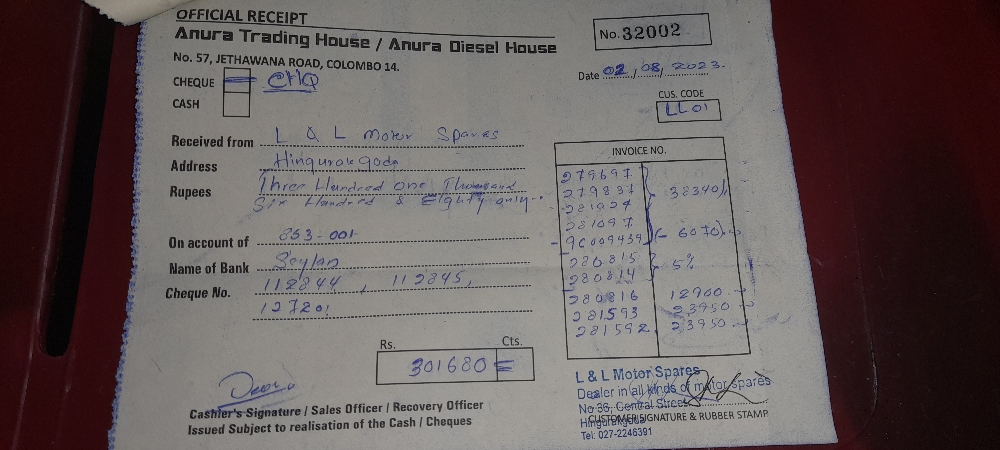 OFFICIAL RECEIPT
Anura Trading House / Anura Diesel House
No. 57, JETHAWANA ROAD, COLOMBO 14.
No. 32002
Date 02/08/2023.
CHEQUE CHQ
CASH
CUS. CODE
LL01
Received from L & L Motor Spares
Address Hingurakgoda
Rupees Three Hundred one Thousand
Six Hundred & Eighty only..
On account of 853-001
Name of Bank Seylan
Cheque No. 112844, 112845,
127201
INVOICE NO.
279697
279837 38340/
281027
281097
- 96009439 (- 6070)
280815 5%
280814
280816 12900.-
281593 23950-
281592 23950-
Rs. Cts.
301680 =
Cashier's Signature / Sales Officer / Recovery Officer
Issued Subject to realisation of the Cash / Cheques
L & L Motor Spares
Dealer in all kinds of motor spares
No 36, Central Street
Hingurakgoda
CUSTOMER SIGNATURE & RUBBER STAMP
Tel: 027-2246391